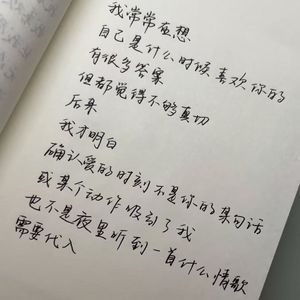 我常常在想
自己是什么时候喜欢你的
有很多答案
但都觉得不够真切
后来
我才明白
确认爱的时刻不是你的某句话
或某个动作吸引了我
也不是夜里听到一首什么情歌
需要代入